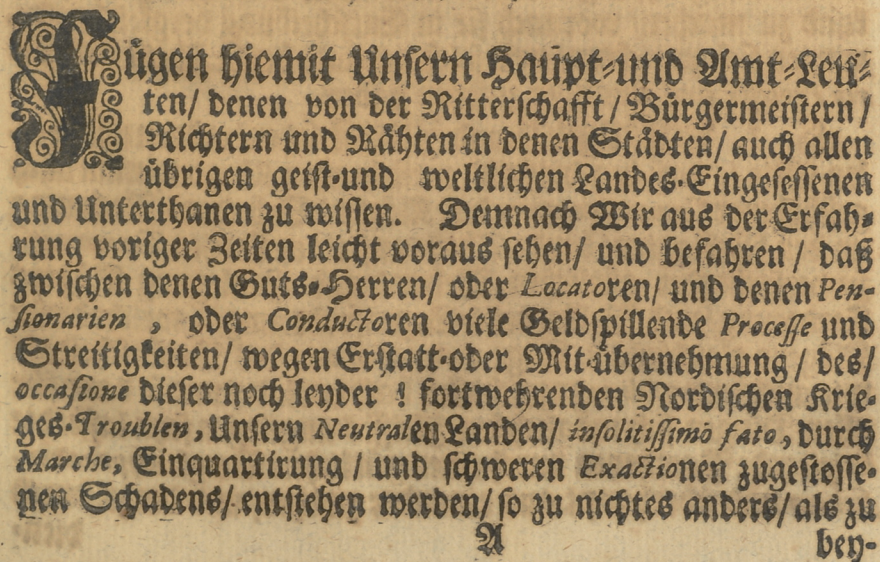 Fügen hiemit Unsern Haupt-und Amt-Leu-
ten/ denen von der Ritterschafft/ Bürgermeistern/
Richtern und Rähten in denen Städten/ auch allen
übrigen geist-und weltlichen Landes-Eingesessenen
und Unterthanen zu wissen. Demnach Wir aus der Erfah-
rung voriger Zeiten leicht voraus sehen/ und befahren/ daß
zwischen denen Guts-Herren/ oder Locatoren/ und denen Pen-
sionarien, oder Conductoren viele Geldspillende Processe und
Streitigkeiten/ wegen Erstatt-oder Mit-übernehmung/ des/
occasione dieser noch leyder! fortwehrenden Nordischen Krie-
ges-Troublen, Unsern Neutralen Landen/ insolitissimò fato, durch
Marche, Einquartirung/ und schweren Exactionen zugestosse-
nen Schadens/ entstehen werden/ so zu nichtes anders/ als zu
A bey-